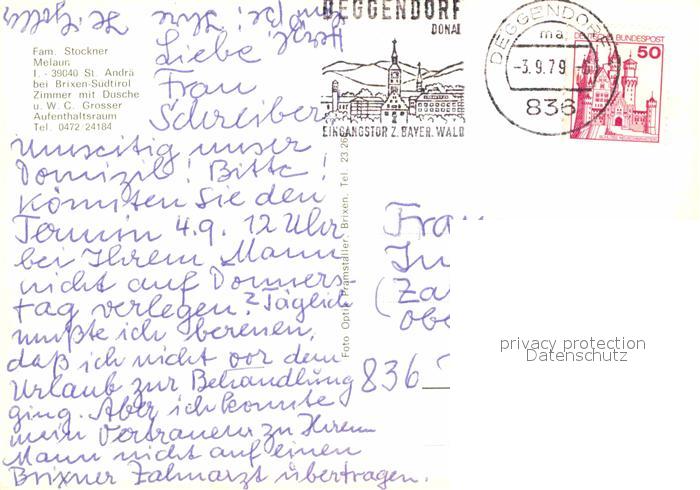 Fam. Stockner
Melaun
I. - 39040 St. Andrä
bei Brixen-Südtirol
Zimmer mit Dusche
u. W. C. Grosser
Aufenthaltsraum
Tel. 0472/24184
Liebe
Frau
Schreiber
Umseitig unser
Domizil! Bitte!
Könnten Sie den
Termin 4.9. 12 Uhr
bei Ihrem Mann
nicht auf Donners-
tag verlegen? Täglich
mußte ich bereuen,
daß ich nicht vor dem
Urlaub zur Behandlung
ging. Aber ich konnte
mein Vertrauen zu Ihrem
Mann nicht auf einen
Brixner Zahnarzt übertragen.
Herzl. Grüße! Ihre
Foto Optik Pramstaller, Brixen, Tel. 23 26
DEGGENDORF
DONAU
EINGANGSTOR Z. BAYER. WALD
DEGGENDORF
ma
-3.9.79
836
DEUTSCHE BUNDESPOST
50
Frau
(Za
obe
836
privacy protection
Datenschutz